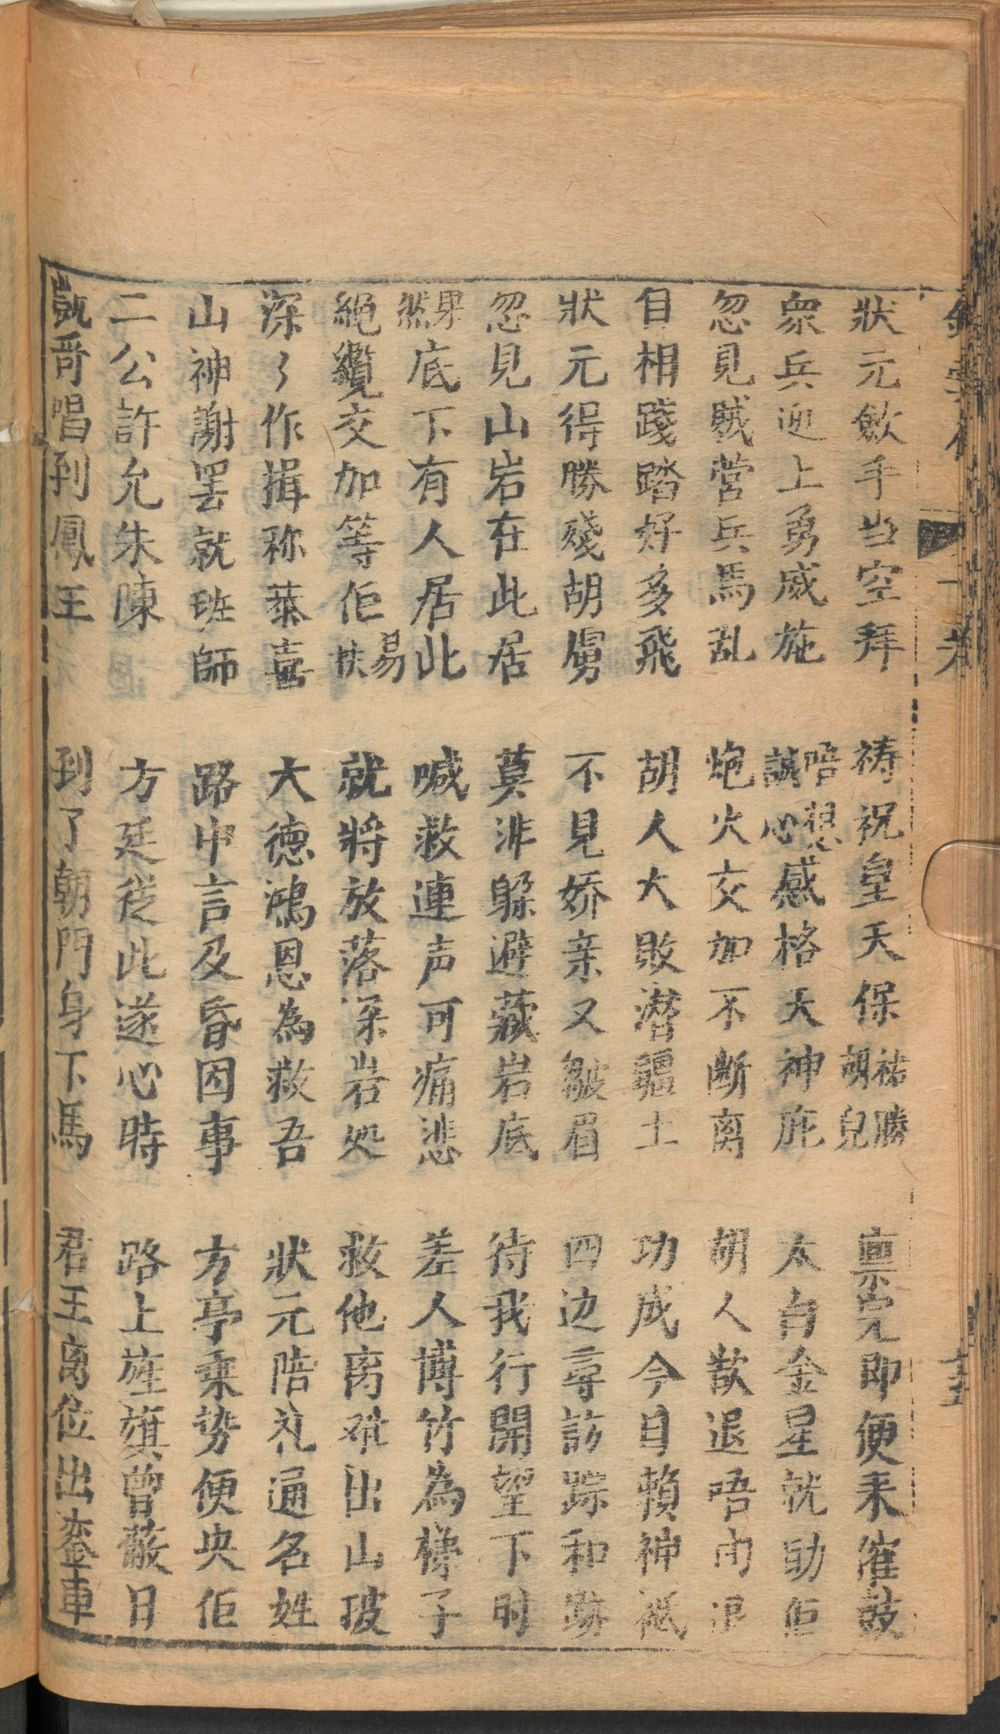 狀元斂手当空拜 祷祝皇天保祐勝胡兒 禀完即便来催鼓
衆兵迎上勇威施 唔想誠心感格天神庇 太白金星就助佢
忽見賊营兵馬乱 炮火交加不断离 胡人歡退唔由退
自相踐踏好多飛 胡人大敗潜疆土 功成今自賴神祗
狀元得勝殘胡虜 不見娇亲又皺眉 四边尋訪踪和跡
忽見山岩在此居 莫非躲避藏岩底 待我行開望下时
果然底下有人居此 喊救連声可痛悲 差人博竹為梯子
絕纜交加等佢易扶 就將放落深岩处 救他离难出山玻
深々作揖称恭喜 大德鴻恩為救吾 狀元陪礼通名姓
山神謝罢就班師 路中言及昏因事 方亭乘势便央佢
二公許允朱陳 方廷從此遂心時 路上旌旗曾蔽日
凱哥唱到鳳王 到了朝門身下馬 君王离位出鑾車